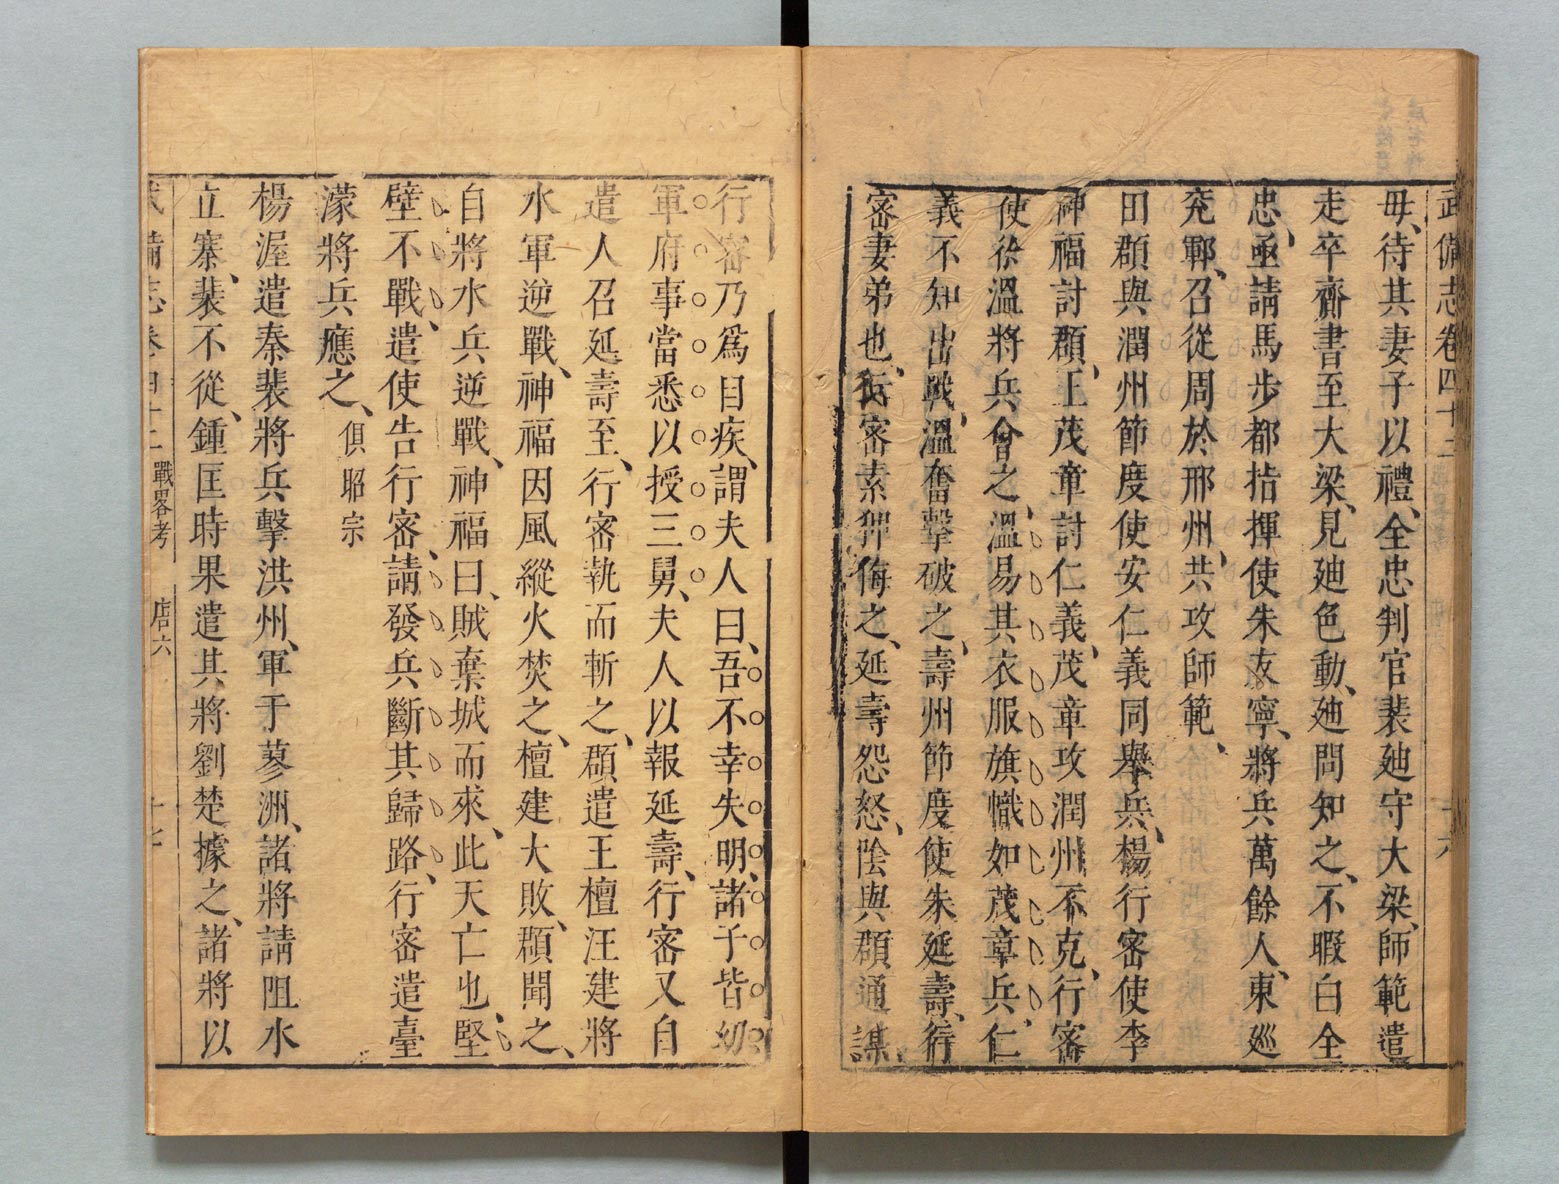 武備志卷四十二
十六
母、待其妻子以禮、全忠判官裴廸守大梁、師範遣
走卒齎書至大梁、見廸色動、廸問知之、不暇白全
忠、亟請馬步都指揮使朱友寧、將兵萬餘人、東巡
兖鄆、召從周於邢州、共攻師範、
田頵與潤州節度使安仁義同舉兵、楊行密使李
神福討頵、王茂章討仁義、茂章攻潤州不克、行密
使徐溫將兵會之、溫易其衣服旗幟如茂章兵、仁
義不知出戰、溫奮擊破之、壽州節度使朱延壽、行
密妻弟也、行密素狎侮之、延壽怨怒、陰與頵通謀、
行密乃爲目疾、謂夫人曰、吾不幸失明、諸子皆幼
軍府事當悉以授三舅、夫人以報延壽、行密又自
遣人召延壽至、行密執而斬之、頵遣王檀汪建將
水軍逆戰、神福因風縱火焚之、檀建大敗、頵聞之、
自將水兵逆戰、神福曰、賊棄城而來、此天亡也、堅
壁不戰、遣使告行密、請發兵斷其歸路、行密遣臺
濛將兵應之、俱昭宗
楊渥遣秦裴將兵擊洪州、軍于蓼洲、諸將請阻水
立寨、裴不從、鍾匡時果遣其將劉楚據之、諸將以
武備志卷四十二 戰畧考 唐六
十七